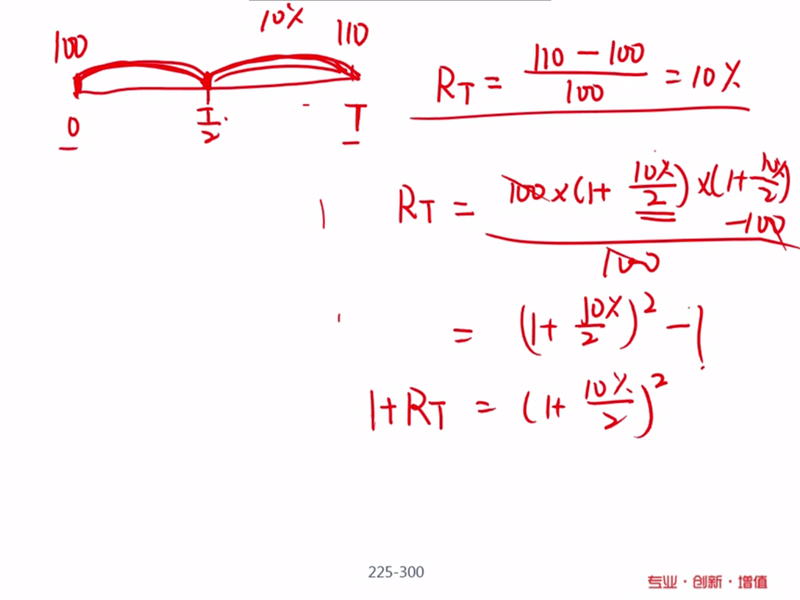 10%
100 110
0 T/2 T
R_T = (110 - 100)/100 = 10%
R_T = (100 × (1 + 10%/2) × (1 + 10%/2) - 100)/100
= (1 + 10%/2)² - 1
1 + R_T = (1 + 10%/2)²
225-300
专业·创新·增值